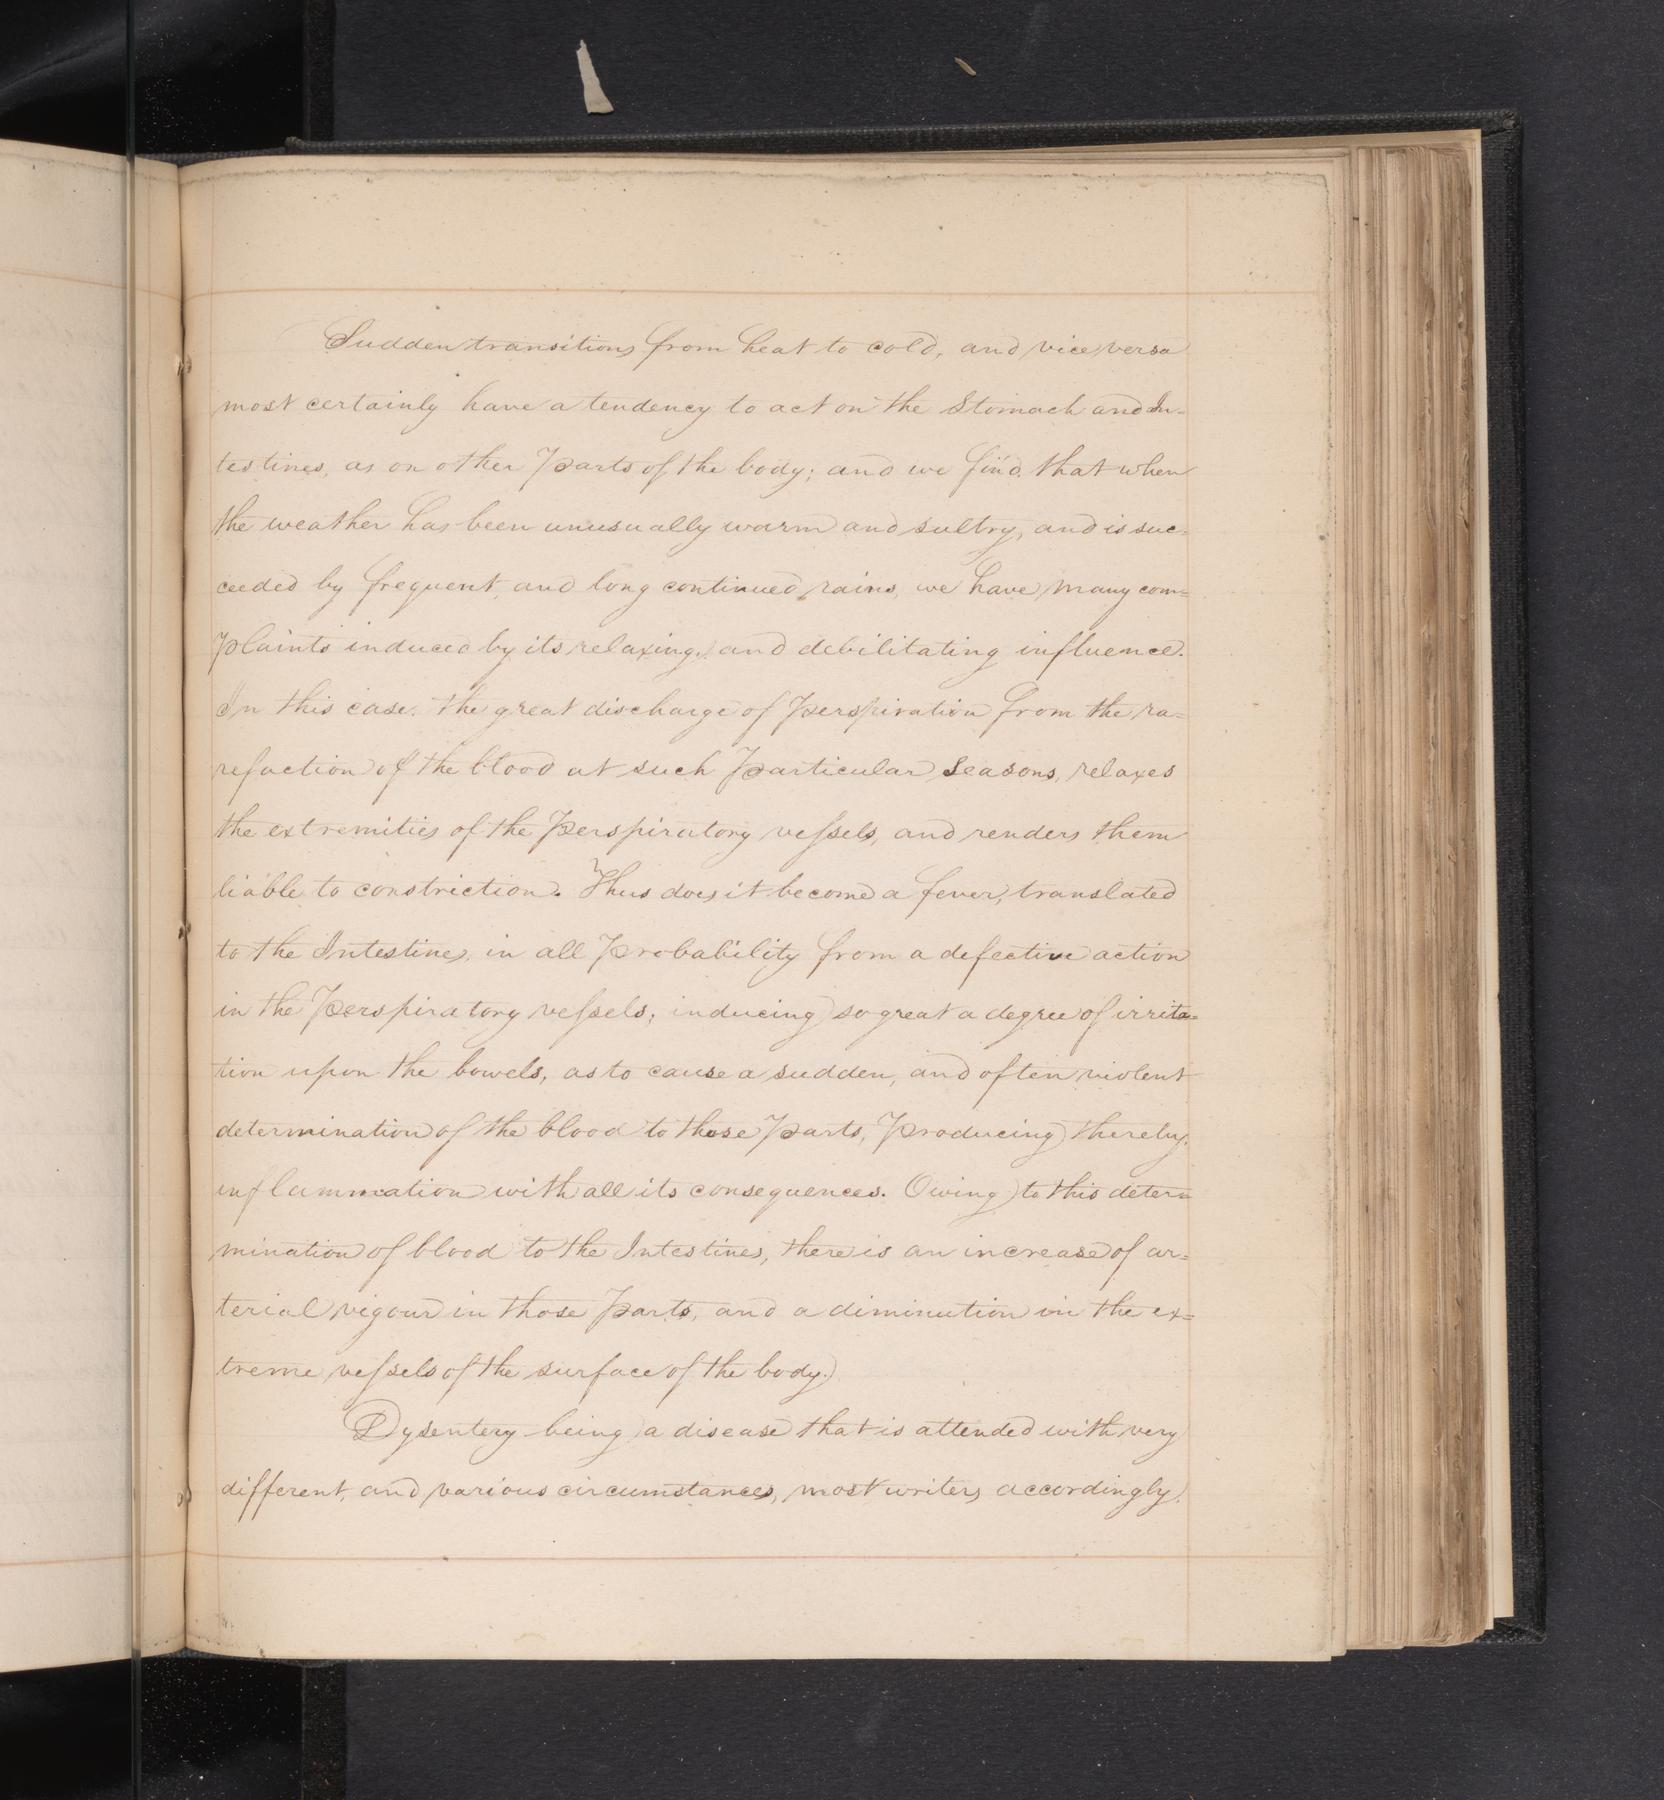 Sudden transitions from heat to cold, and vice versa
most certainly have a tendency to act on the Stomach and In=
testines, as on other Parts of the body; and we find that when
the weather has been unusually warm and sultry, and is suc=
ceeded by frequent, and long continued rains, we have many com=
plaints induced by its relaxing, and debilitating influence.
In this case. the great discharge of Perspiration from the ra=
refaction of the blood at such Particular Seasons, relaxes
the extremities of the Perspiratory vessels, and renders them
liable to constriction. Thus does it become a fever, translated
to the Intestines, in all Probability from a defective action
in the Perspiratory vessels; inducing so great a degree of irrita=
tion upon the bowels, as to cause a sudden, and often violent
determination of the blood to those Parts, Producing thereby.
inflammation with all its consequences. Owing to this deter=
mination of blood to the Intestines, there is an increase of ar=
terial vigour in those Parts, and a diminution in the ex=
treme vessels of the surface of the body.
Dysentery being a disease that is attended with very
different, and various circumstances, most writers accordingly.